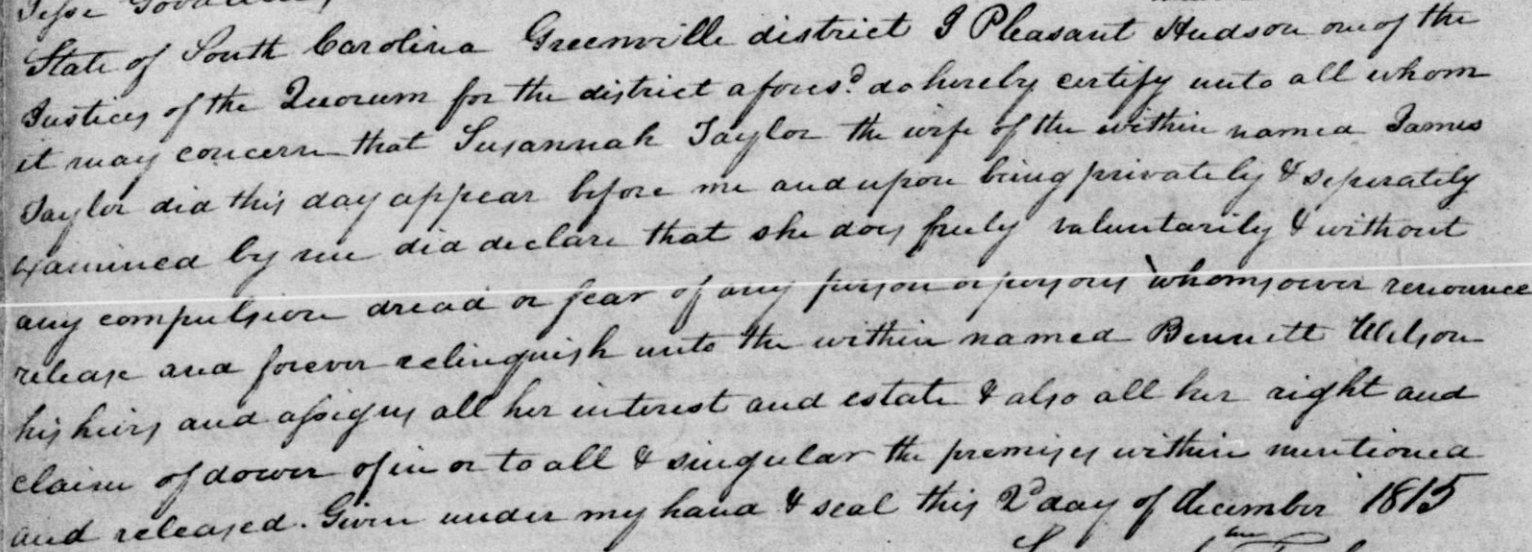 Jesse
State of South Carolina Greenville district I Pleasant Hudson one of the
Justices of the Quorum for the district afores.d do hereby certify unto all whom
it may concern that Susannah Taylor the wife of the within named James
Taylor did this day appear before me and upon being privately & seperately
examined by me did declare that she does freely voluntarily & without
any compulsion dread or fear of any person or persons whomsoever renounce
release and forever relinquish unto the within named Bennett Wilson
his heirs and assigns all her interest and estate & also all her right and
claim of dower of in or to all & singular the premises within mentioned
and released. Given under my hand & seal this 2d day of december 1815